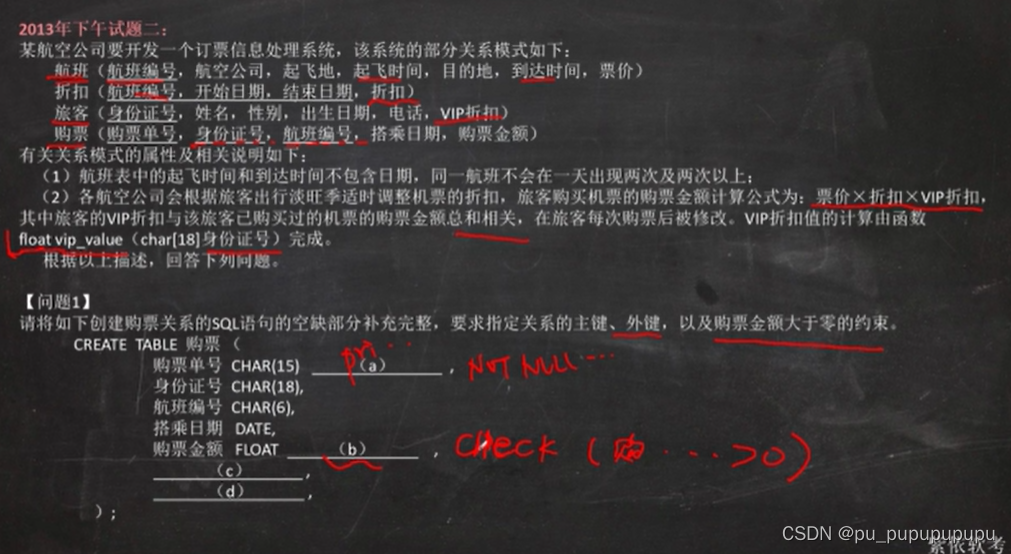 2013年下午试题二：
某航空公司要开发一个订票信息处理系统，该系统的部分关系模式如下：
航班（航班编号，航空公司，起飞地，起飞时间，目的地，到达时间，票价）
折扣（航班编号，开始日期，结束日期，折扣）
旅客（身份证号，姓名，性别，出生日期，电话，VIP折扣）
购票（购票单号，身份证号，航班编号，搭乘日期，购票金额）
有关关系模式的属性及相关说明如下：
（1）航班表中的起飞时间和到达时间不包含日期，同一航班不会在一天出现两次及两次以上；
（2）各航空公司会根据旅客出行淡旺季适时调整机票的折扣，旅客购买机票的购票金额计算公式为：票价×折扣×VIP折扣，
其中旅客的VIP折扣与该旅客已购买过的机票的购票金额总和相关，在旅客每次购票后被修改。VIP折扣值的计算由函数
float vip_value（char[18]身份证号）完成。
根据以上描述，回答下列问题。
【问题1】
请将如下创建购票关系的SQL语句的空缺部分补充完整，要求指定关系的主键、外键，以及购票金额大于零的约束。
CREATE TABLE 购票（
pri ...
购票单号 CHAR(15) （a）， NOT NULL ....
身份证号 CHAR(18),
航班编号 CHAR(6),
搭乘日期 DATE,
购票金额 FLOAT （b）， CHECK (购 ....>0)
（c），
（d），
）；
CSDN @pu_pupupupupu
紫依软考